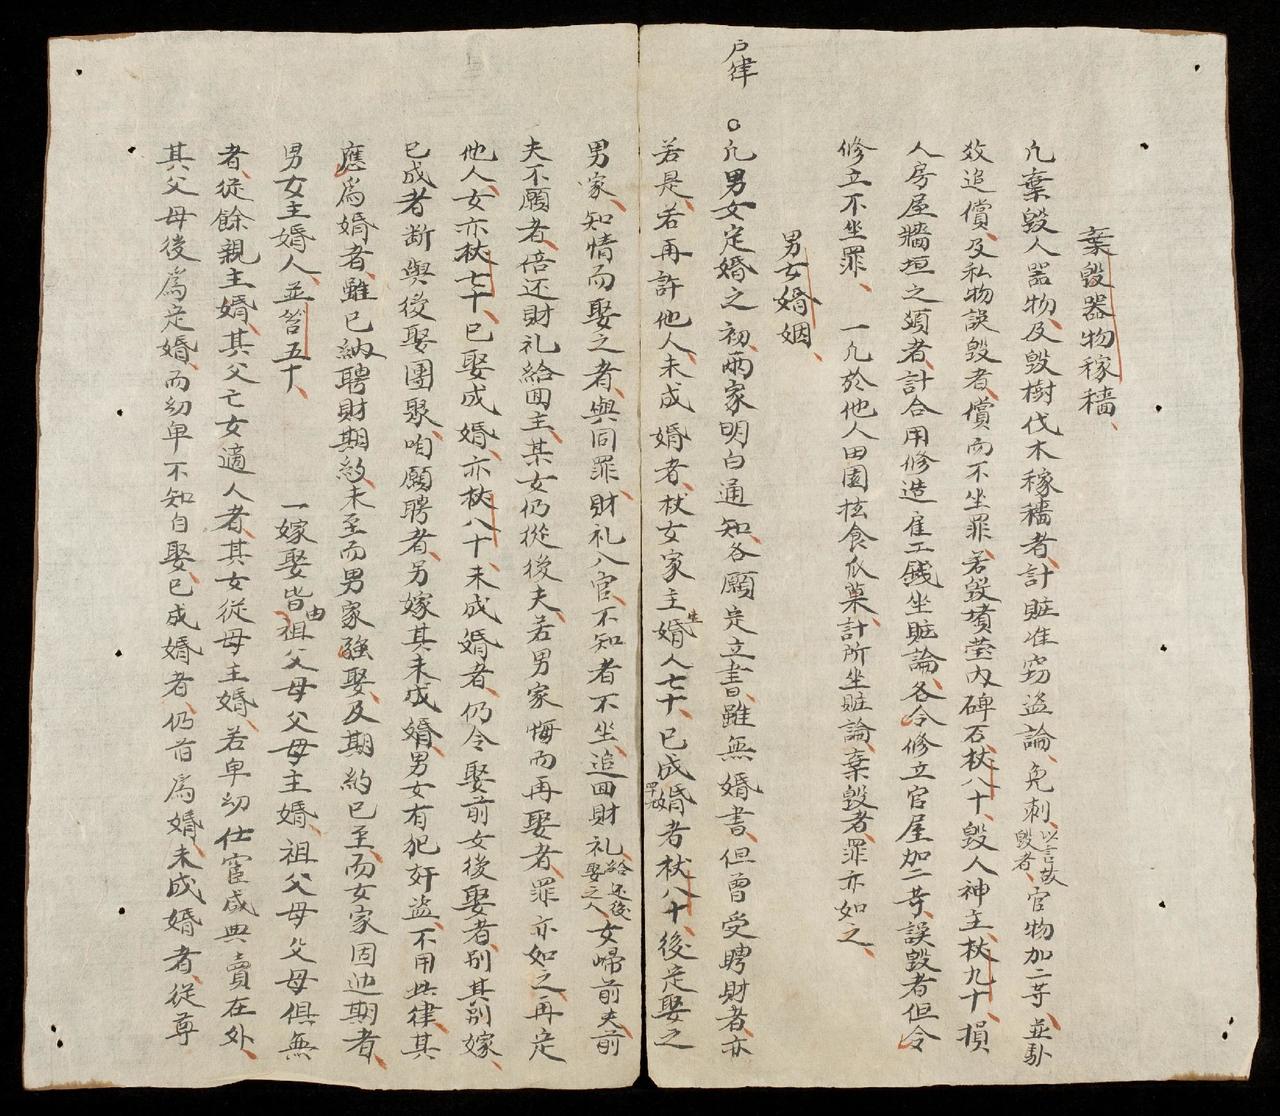 棄毀器物稼穡
凢棄毀人器物、及毀樹伐木稼穡者、計賍准窃盗論、免刺、以言故毀者、官物加二等、並馱
效追償、及私物誤毀者、償而不坐罪、若毀墳塋内碑石、杖八十、毀人神主、杖九十、損
人房屋墻垣之𩔖者、計合用修造雇工錢坐賍論、各令修立官屋加二等、誤毀者但令
修立不坐罪、一凢於他人田園擅食瓜菓、計所坐賍論、棄毀者、罪亦如之、
男女婚姻、
戸律
○凢男女定婚之初、兩家明白通知、各願定立書、雖無婚書、但曽受聘財者、亦
若是、若再許他人、未成婚者、杖女家主婚人七十、已成婚者杖八十、後定娶之
男家、知情而娶之者、與同罪、財礼入官、不知者不坐、追囬財礼、給还後娶之人、女帰前夫、前
夫不願者、倍还財礼給囬主、某女仍從後夫、若男家悔而再娶者、罪亦如之、再定
他人、女亦杖七十、已娶成婚、亦杖八十、未成婚者、仍令娶前女後娶者、别其别嫁、
已成者断與後娶團聚、咱願聘者、另嫁其未成婚、男女有犯奸盗、不用此律、其
應為婚者、雖已納聘財期約、未至而男家強娶、及期約已至、而女家固迯期者、
男女主婚人、並笞五十、一嫁娶皆由祖父母父母主婚、祖父母父母俱無
者、従餘親主婚、其父亡女適人者、其女従母主婚、若卑幼仕宦或典賣在外、
其父母後為定婚、而幼卑不知自娶、已成婚者、仍旧為婚、未成婚者、従尊